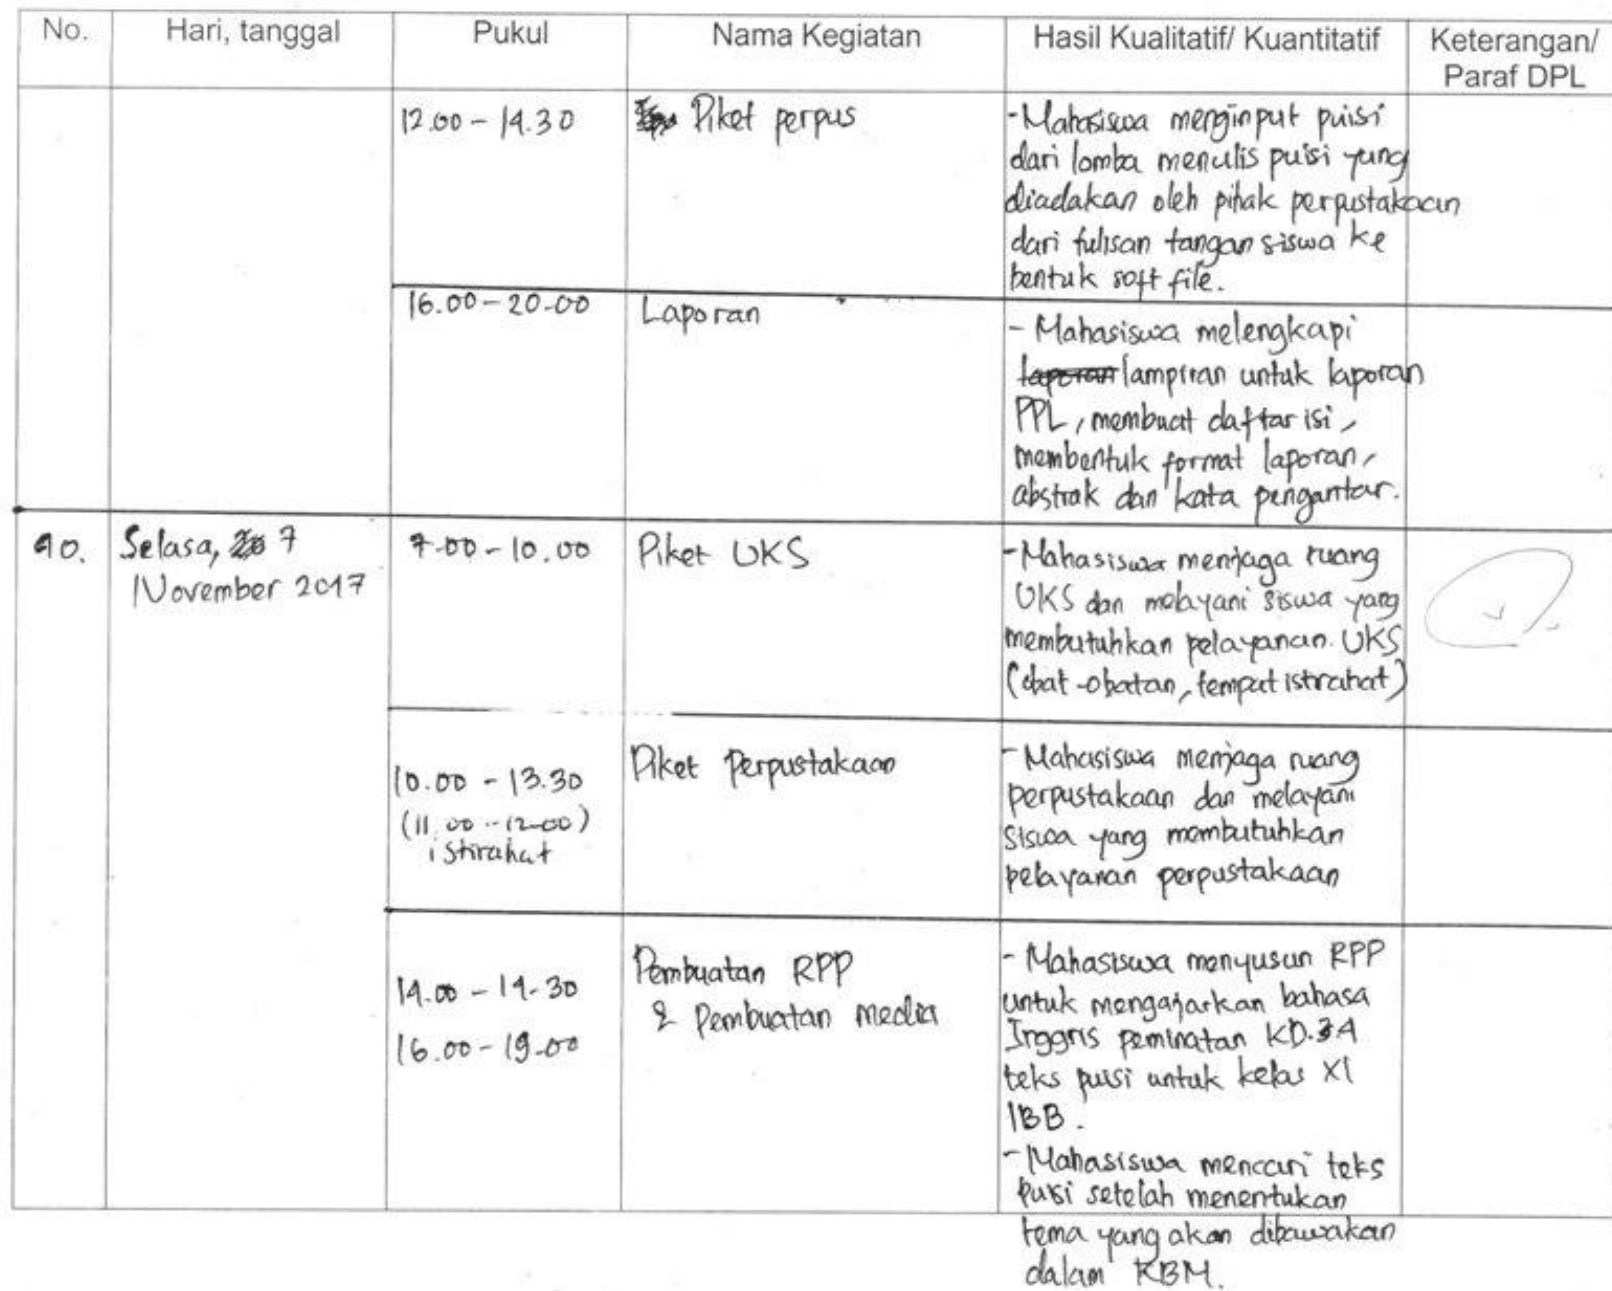 No. Hari, tanggal Pukul Nama Kegiatan Hasil Kualitatif/ Kuantitatif Keterangan/
Paraf DPL
12.00 - 14.30 Piket perpus - Mahasiswa menginput puisi
dari lomba menulis puisi yang
diadakan oleh pihak perpustakaan
dari tulisan tangan siswa ke
bentuk soft file.
16.00 - 20.00 Laporan - Mahasiswa melengkapi
laporan lampiran untuk laporan
PPL, membuat daftar isi,
membentuk format laporan,
abstrak dan kata pengantar.
40. Selasa, 7 7.00 - 10.00 Piket UKS - Mahasiswa menjaga ruang
November 2017 UKS dan melayani siswa yang
membutuhkan pelayanan UKS
(obat-obatan, tempat istrahat)
10.00 - 13.30 Piket Perpustakaan - Mahasiswa menjaga ruang
(11.00 - 12.00) perpustakaan dan melayani
istirahat siswa yang membutuhkan
pelayanan perpustakaan
14.00 - 14.30 Pembuatan RPP - Mahasiswa menyusun RPP
16.00 - 19.00 & Pembuatan media untuk mengajarkan bahasa
Inggris peminatan KD.
teks puisi untuk kelas XI
IBB.
- Mahasiswa mencari teks
puisi setelah menentukan
tema yang akan dibawakan
dalam KBM.